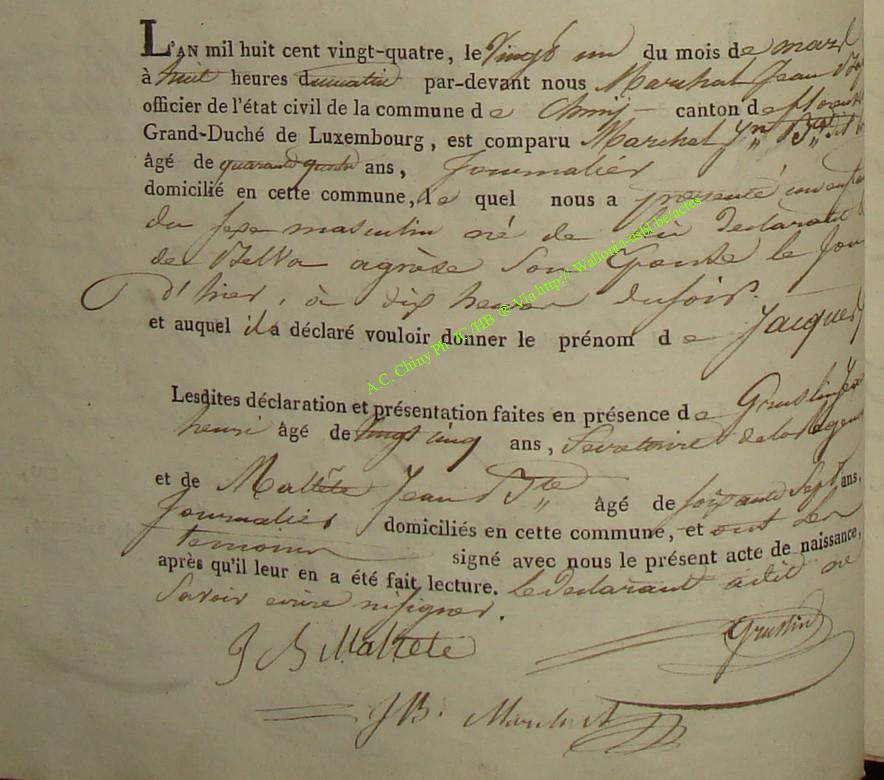 L'AN mil huit cent vingt-quatre, le Vingt un du mois de mars
à huit heures du matin par-devant nous Marchal Jean
officier de l'état civil de la commune de Chiny canton de florenv
Grand-Duché de Luxembourg, est comparu Marchal Jn Bte
âgé de quarante quatre ans, Journalier
domicilié en cette commune, le quel nous a présenté un enfant
du sexe masculin né de lui Declarant
de agée son le jour
d'hier, à dix heures du soir.
et auquel il a déclaré vouloir donner le prénom de Jacques
Lesdites déclaration et présentation faites en présence de Gruslin Jean
henri âgé de Vingt cinq ans, Secretaire de la
et de Maltête Jean Bte âgé de soixante Sept ans,
Journalier domiciliés en cette commune, et ont les
temoins signé avec nous le présent acte de naissance,
après qu'il leur en a été fait lecture. le declarant a dit ne
Savoir ecrire ni signer.
J B Maltete Gruslin
JB. Marchal
A.C. Chiny Ph JC/HB @ Via http:// Wallonia-asbl.be/actes